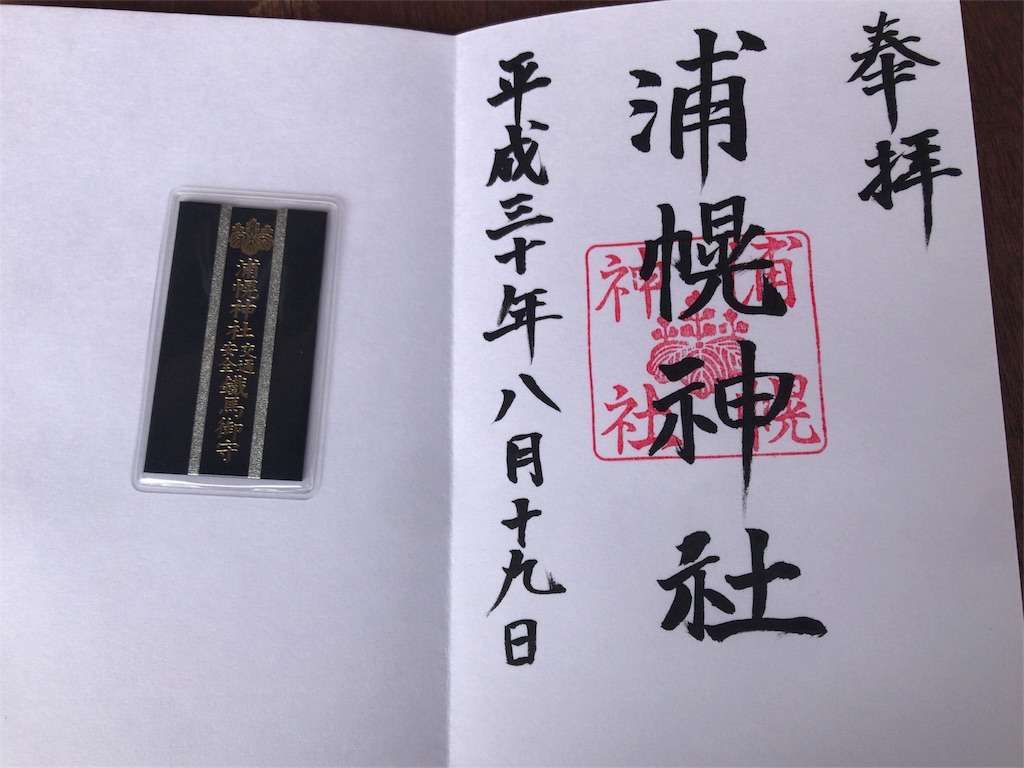 奉拝
浦幌神社
浦幌
神社
平成三十年八月十九日
浦幌神社
交通
安全
鐵馬御守